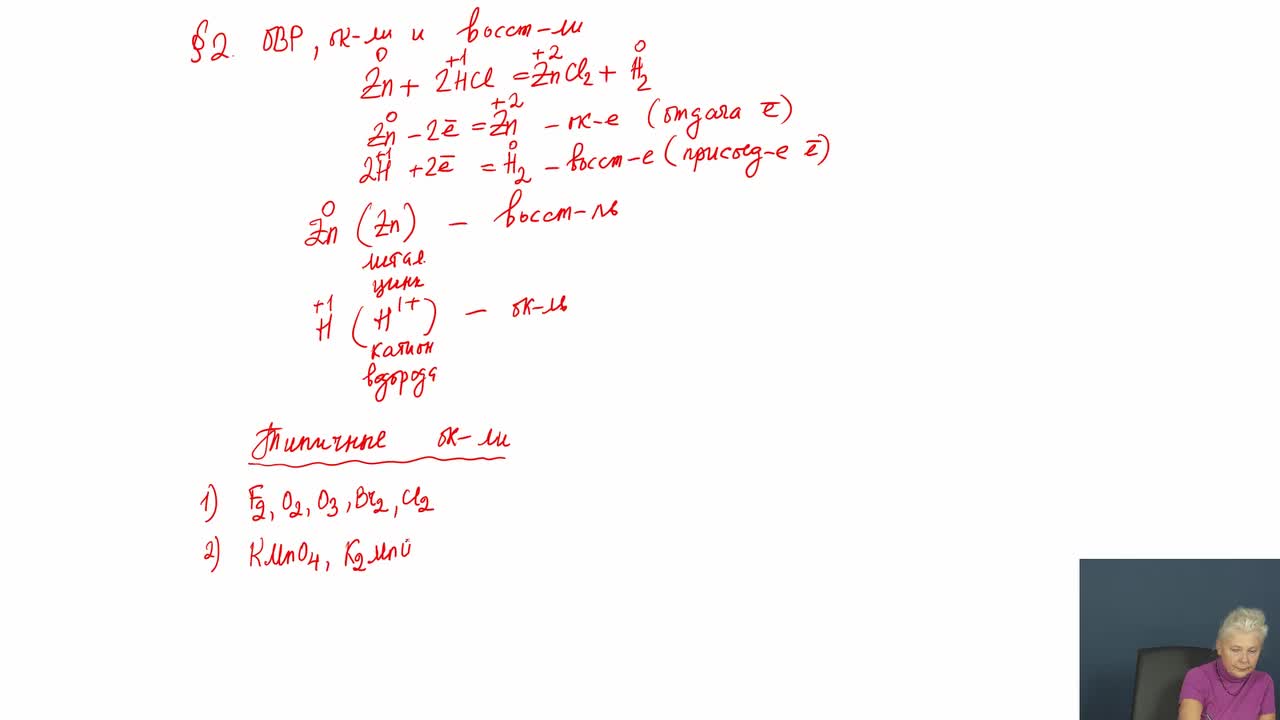 §2. ОВР, ок-ли и восст-ли
0 +1 +2 0
Zn + 2HCl = ZnCl2 + H2
0 +2
Zn - 2ē = Zn - ок-е (отдача ē)
+1 0
2H + 2ē = H2 - восст-е (присоед-е ē)
0
Zn (Zn) - восст-ль
метал.
цинк
+1
H (H1+) - ок-ль
катион
водорода
Типичные ок-ли
1) F2, O2, O3, Br2, Cl2
2) KMnO4, K2MnO